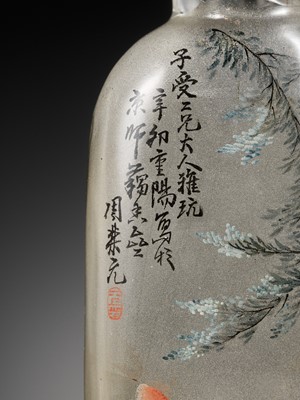 子受二兄大人雅玩
辛卯重陽写於
京師藕香齋
周樂元